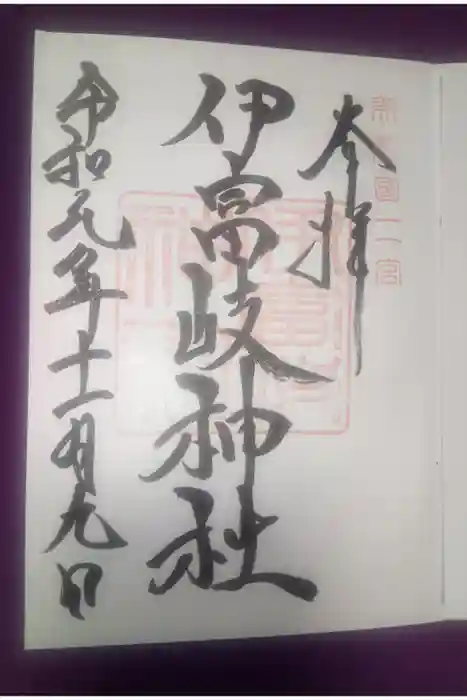 國二宮
奉拝
伊富岐神社
令和元年十一月九日